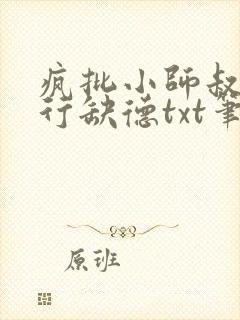 疯批小师叔
行缺德txt笔
原班